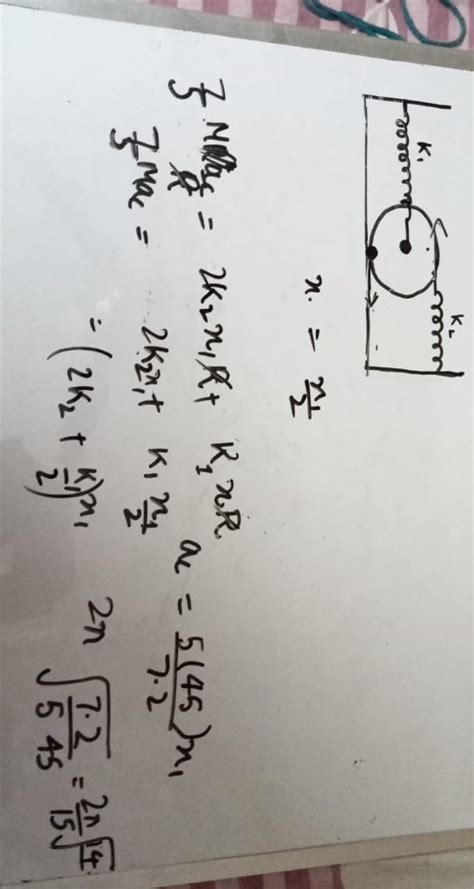 K₁
K₂
x = x₁/2
7/5 M a_c/R = 2K₂x₁R + K₁xR
7/5 Ma_c = 2K₂x₁ + K₁ x₁/2
= (2K₂ + K₁/2)x₁
a_c = 5(45)/7·2 x₁
2π √(7·2/5 45) = 2π/15 √14